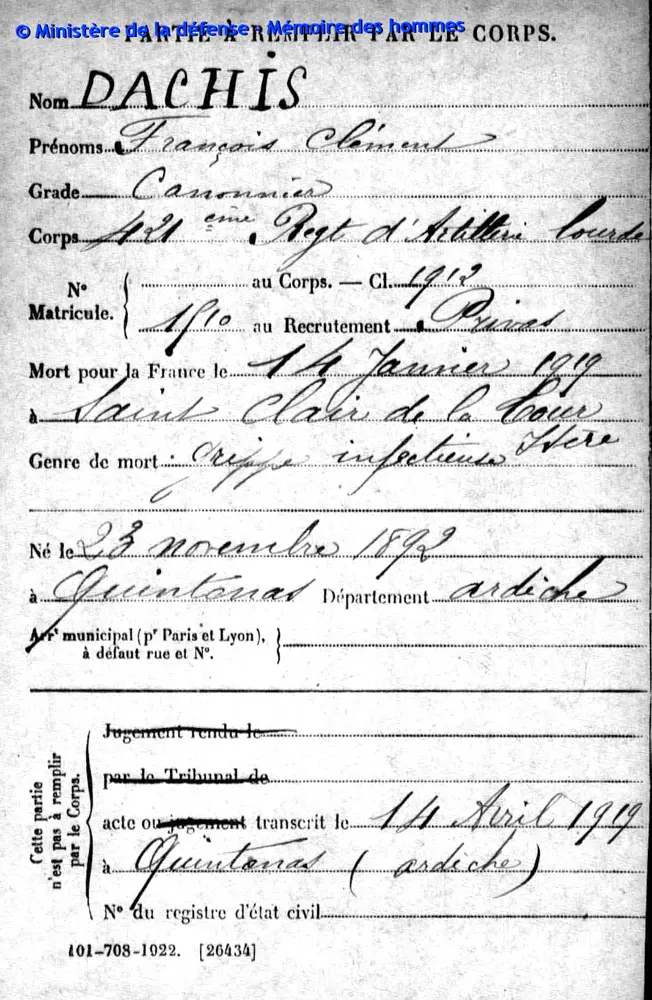 © Ministère de la défense - Mémoire des hommes
PARTIE À REMPLIR PAR LE CORPS.
Nom DACHIS
Prénoms François Clément
Grade Canonnier
Corps 421 eme Regt d'Artillerie lourde
N° Matricule. { au Corps. — Cl. 1912
1510 au Recrutement Privas
Mort pour la France le 14 Janvier 1919
à Saint Clair de la Tour Isère
Genre de mort : Grippe infectieuse
Né le 23 novembre 1892
à Quintenas Département ardèche
Arrt municipal (pr Paris et Lyon), {
à défaut rue et N°.
Cette partie n'est pas à remplir par le Corps.
Jugement rendu le
par le Tribunal de
acte ou jugement transcrit le 14 Avril 1919
à Quintenas (ardèche)
N° du registre d'état civil
101-708-1922. [26434]